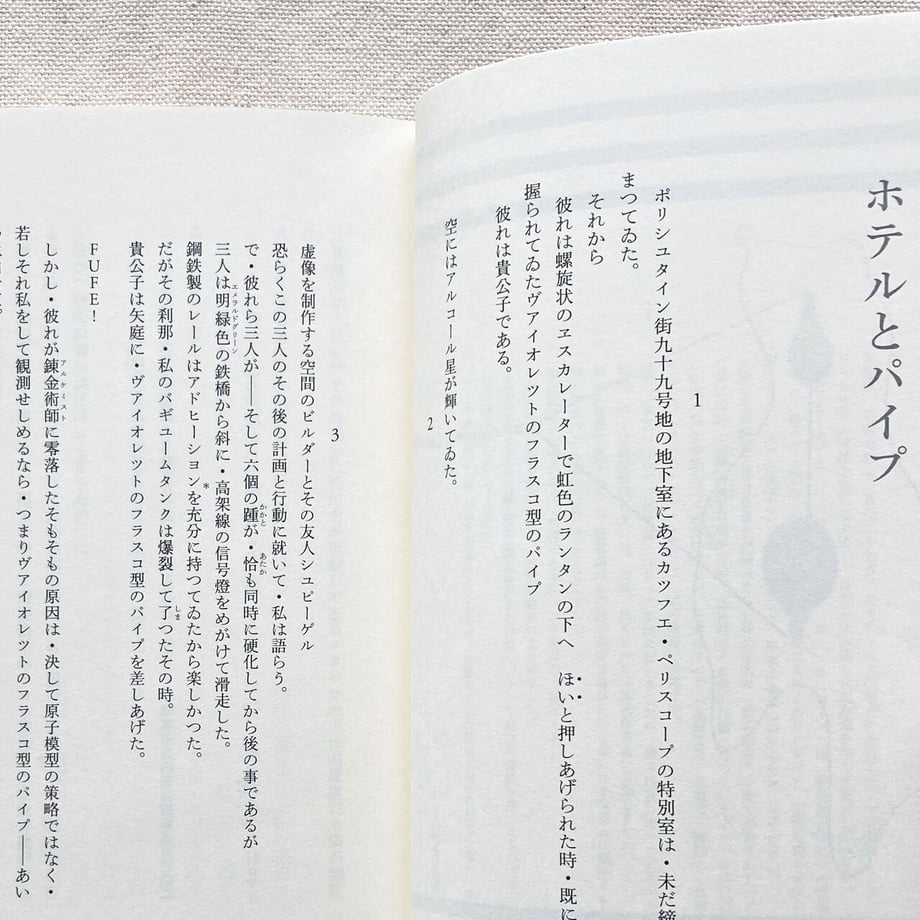 ホテルとパイプ
1
ポリシユタイン街九十九号地の地下室にあるカツフエ・ペリスコープの特別室は・未だ締
まつてゐた。
それから
彼れは螺旋状のヱスカレーターで虹色のランタンの下へ　ほいと押しあげられた時・既に
握られてゐたヴアイオレツトのフラスコ型のパイプ
彼れは貴公子である。
2
空にはアルコール星が輝いてゐた。
3
虚像を制作する空間のビルダーとその友人シユピーゲル
恐らくこの三人のその後の計画と行動に就いて・私は語らう。
で・彼れら三人が――そして六個の踵が・恰も同時に硬化してから後の事であるが
三人は明緑色の鉄橋から斜に・高架線の信号燈をめがけて滑走した。
鋼鉄製のレールはアドヒーション*を充分に持つてゐたから楽しかつた。
だがその刹那・私のバギユームタンクは爆裂して了つたその時。
貴公子は矢庭に・ヴアイオレツトのフラスコ型のパイプを差しあげた。
FUFE!
しかし・彼れが錬金術師に零落したそもそもの原因は・決して原子模型の策略ではなく・
若しそれ私をして観測せしめるなら・つまりヴアイオレツトのフラスコ型のパイプ――あい